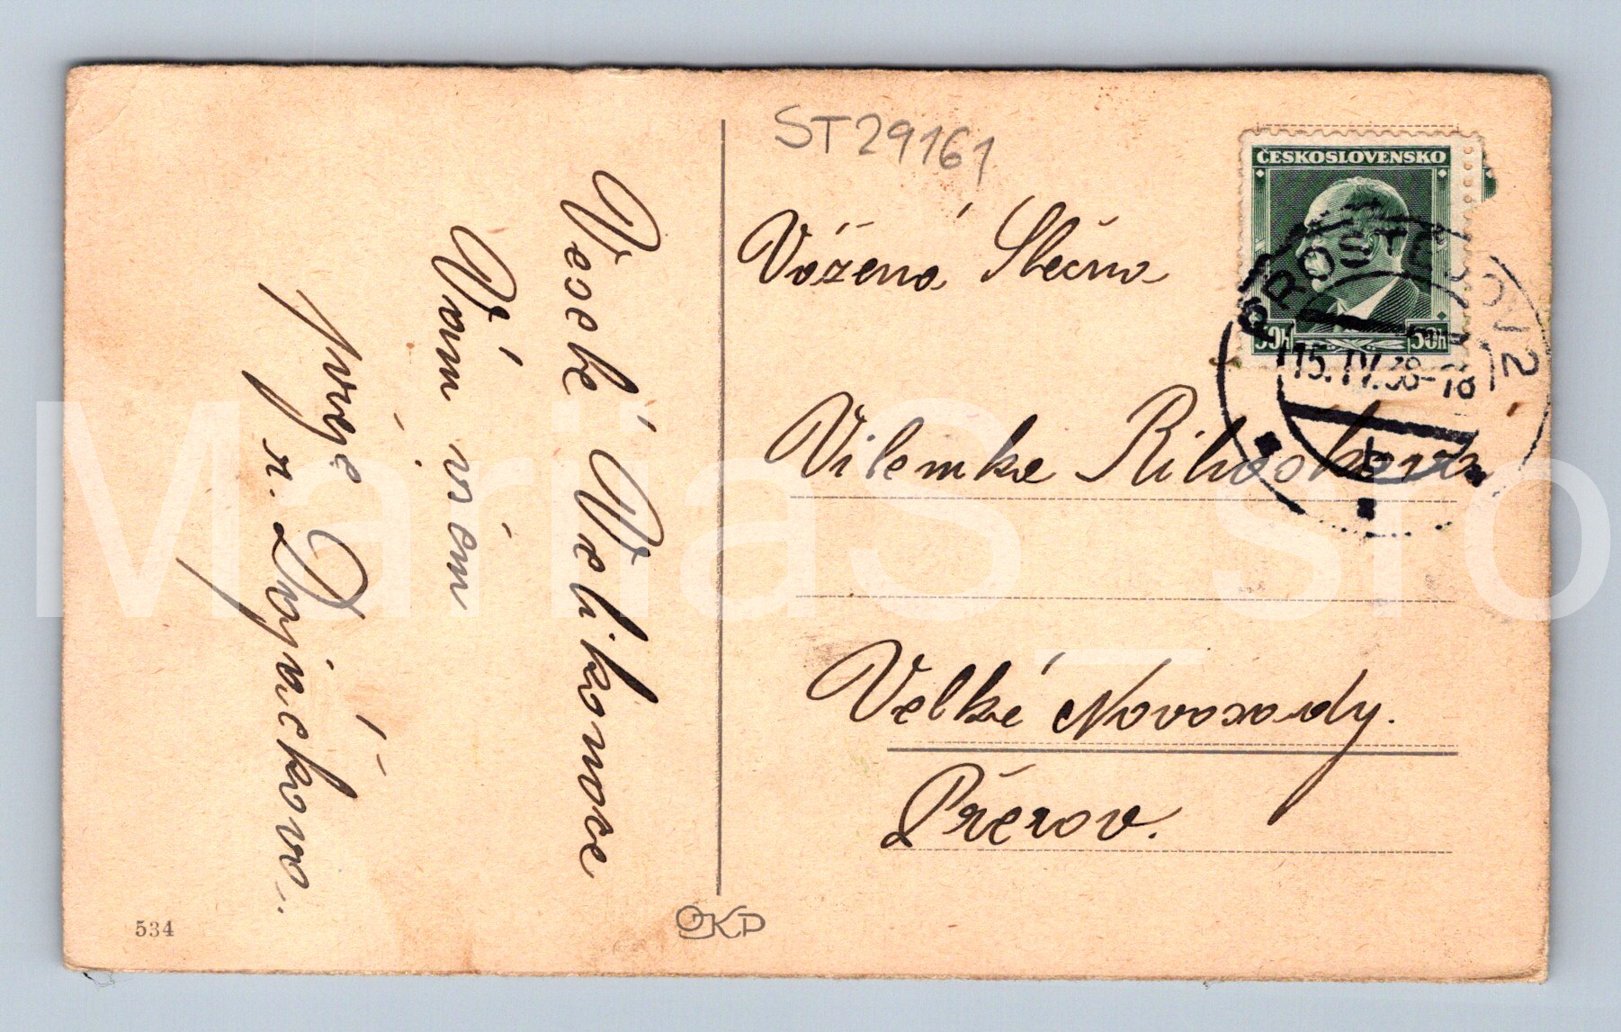 ST29161
ČESKOSLOVENSKO
50h 50h
PROSTĚJOV 2
15.IV.38-18
b
Vážená Slečna
Vilemka
Velké Novosady.
Přerov.
Veselé Velikonoce
Vám všem
přeje
r. Dojáčkova.
534
OKP
MarijaS_sro